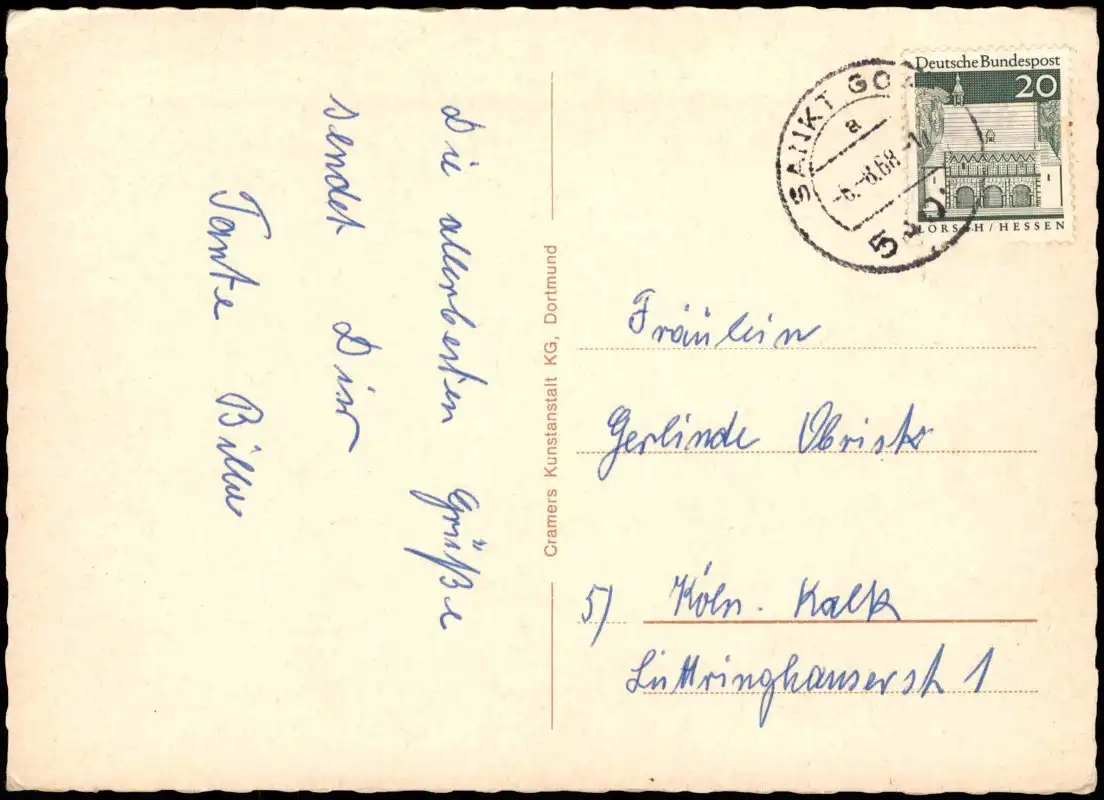 Die allerbesten Grüße
sendet Dir
Tante Billa
Cramers Kunstanstalt KG, Dortmund
SANKT GO
a
-6.-8.68.-1
540
Deutsche Bundespost
20
LORSCH/HESSEN
Fräulein
Gerlinde Obrist
5) Köln-Kalk
Lüttringhauserstr 1